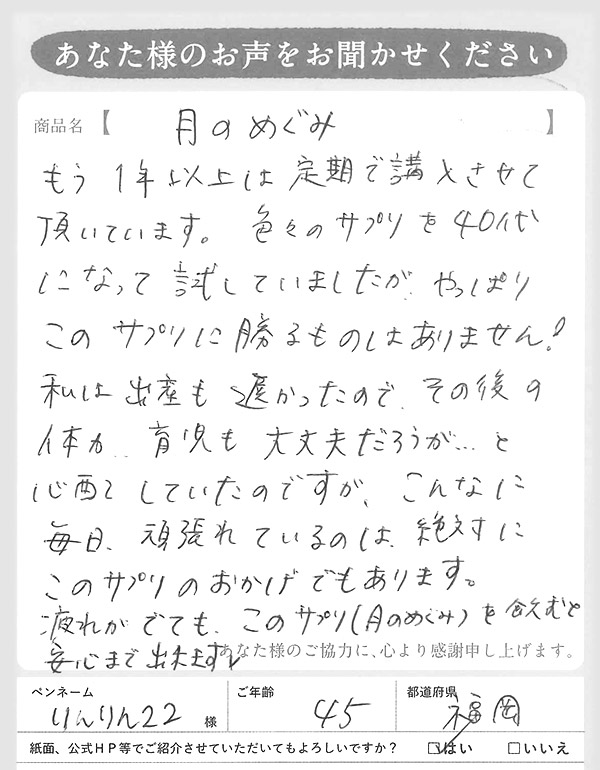 あなた様のお声をお聞かせください
商品名【 月のめぐみ 】
もう1年以上は定期で講入させて
頂いています。色々のサプリを40代
になって試していましたが、やっぱり
このサプリに勝るものはありません!
私は出産も遅かったので、その後の
体力、育児も大丈夫だろうが…と
心配していたのですが、こんなに
毎日、頑張れているのは、絶対に
このサプリのおかげでもあります。
疲れがでても、このサプリ(月のめぐみ)を飲むと
安心まで出来ます。
あなた様のご協力に、心より感謝申し上げます。
ペンネーム ご年齢 都道府県
りんりん22 様 45 福岡
紙面、公式HP等でご紹介させていただいてもよろしいですか? □はい □いいえ